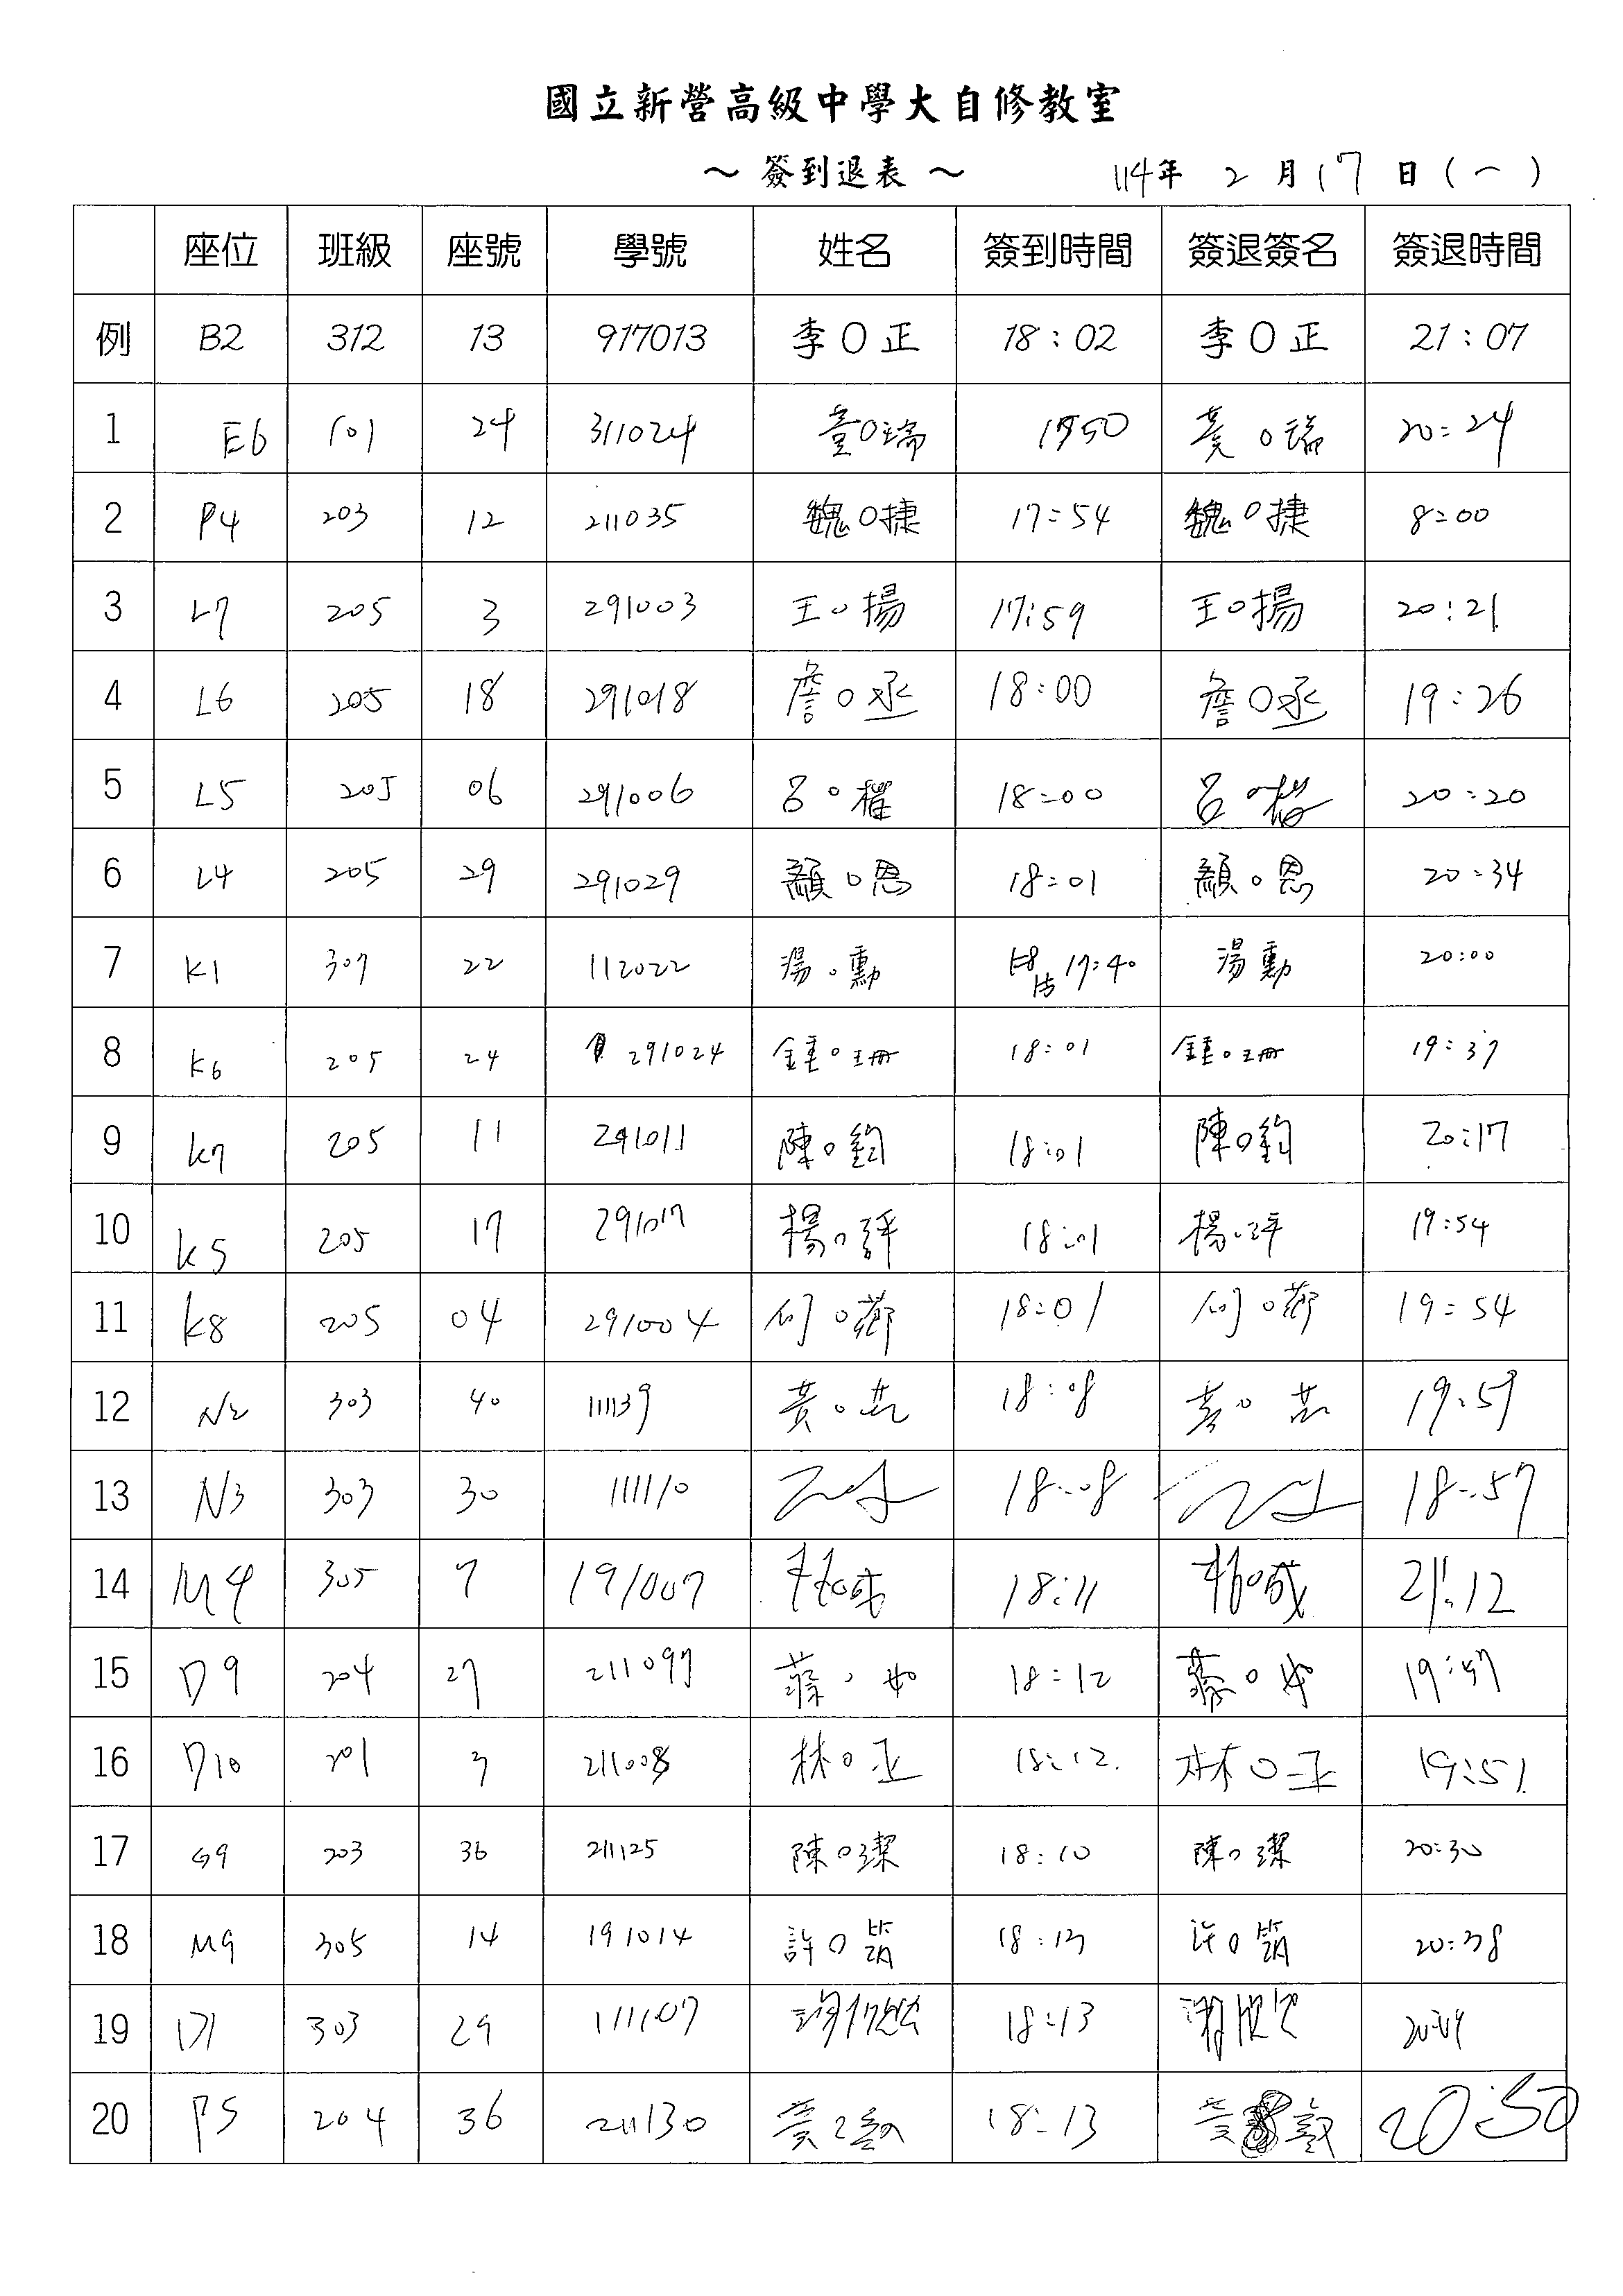 國立新營高級中學大自修教室
～ 簽到退表 ～ 114年 2 月 17 日 (一)
座位 班級 座號 學號 姓名 簽到時間 簽退簽名 簽退時間
例 B2 312 13 917013 李O正 18:02 李O正 21:07
1 E6 101 24 311024 黃O瑞 1750 黃O瑞 20:24
2 P4 203 12 211035 魏O捷 17:54 魏O捷 8:00
3 L7 205 3 291003 王O揚 17:59 王O揚 20:21
4 L6 205 18 291018 詹O丞 18:00 詹O丞 19:26
5 L5 205 06 291006 呂O權 18:00 呂O 20:20
6 L4 205 29 291029 顏O恩 18:01 顏O恩 20:34
7 K1 307 22 112022 湯O勳 17:40 湯勳 20:00
8 K6 205 24 291024 鍾O珊 18:01 鍾O珊 19:37
9 K7 205 11 291011 陳O鈞 18:01 陳O鈞 20:17
10 K5 205 17 291017 楊O評 18:01 楊O評 19:54
11 K8 205 04 291004 何O 18:01 何O 19:54
12 N2 303 40 111139 黃O 18:08 黃O 19:59
13 N3 303 30 111110 18:08 18:57
14 M4 305 7 191007 18:11 21:12
15 D9 204 27 211097 O 18:12 O 19:57
16 D10 201 3 211008 林O正 18:12 林O正 19:51
17 G9 203 36 211125 陳O潔 18:10 陳O潔 20:30
18 M9 305 14 191014 許O筑 18:13 許O筑 20:38
19 303 29 111107 18:13
20 P5 204 36 211130 黃 18:13 黃 20:50